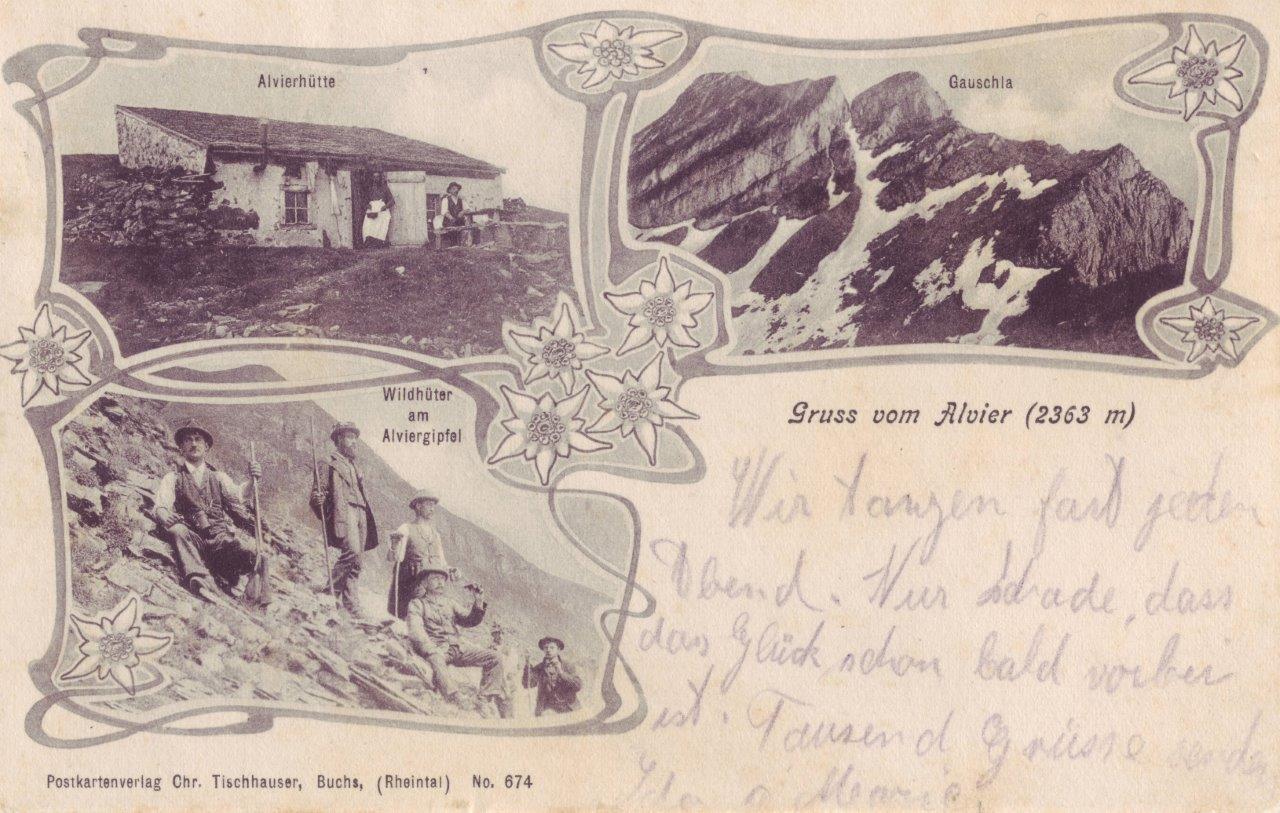 Alvierhütte
Gauschla
Wildhüter
am
Alviergipfel
Gruss vom Alvier (2363 m)
Wir tanzen fast jeden
Abend. Nur schade, dass
das Glück schon bald vorbei
ist. Tausend Grüsse senden
Ida Marie
Postkartenverlag Chr. Tischhauser, Buchs, (Rheintal) No. 674